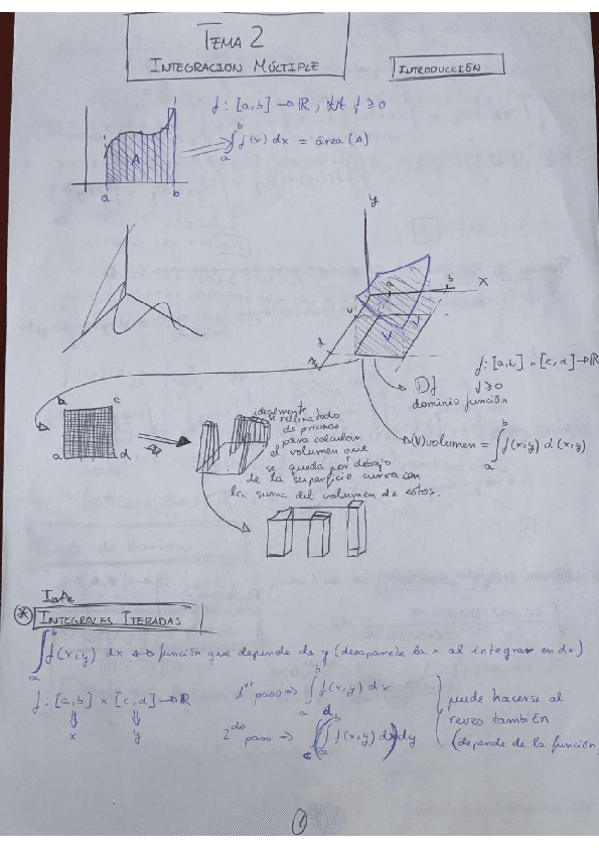 TEMA 2
INTEGRACION MÚLTIPLE
INTRODUCCIÓN
f: [a,b] → ℝ, f ≥ 0
∫_a^b f(x) dx = área (A)
A
a b
y
x
a
b
c
d
V
f: [a,b] × [c,d] → ℝ
f ≥ 0
Df
dominio función
b c
a d
idealmente
se rellena todo
de prismas
para calcular
el volumen que
se queda por debajo
de la superficie curva con
la suma del volumen de estos.
(V) volumen = ∫_a^b f(x,y) d(x,y)
* INTEGRALES ITERADAS
∫_a^b f(x,y) dx → función que depende de y (desaparece la x al integrar en dx)
f: [a,b] × [c,d] → ℝ
x y
1er paso ⇒ ∫_a^b f(x,y) dx
2do paso ⇒ ∫_c^d (∫_a^b f(x,y) dx) dy
puede hacerse al
reves también
(depende de la función
1